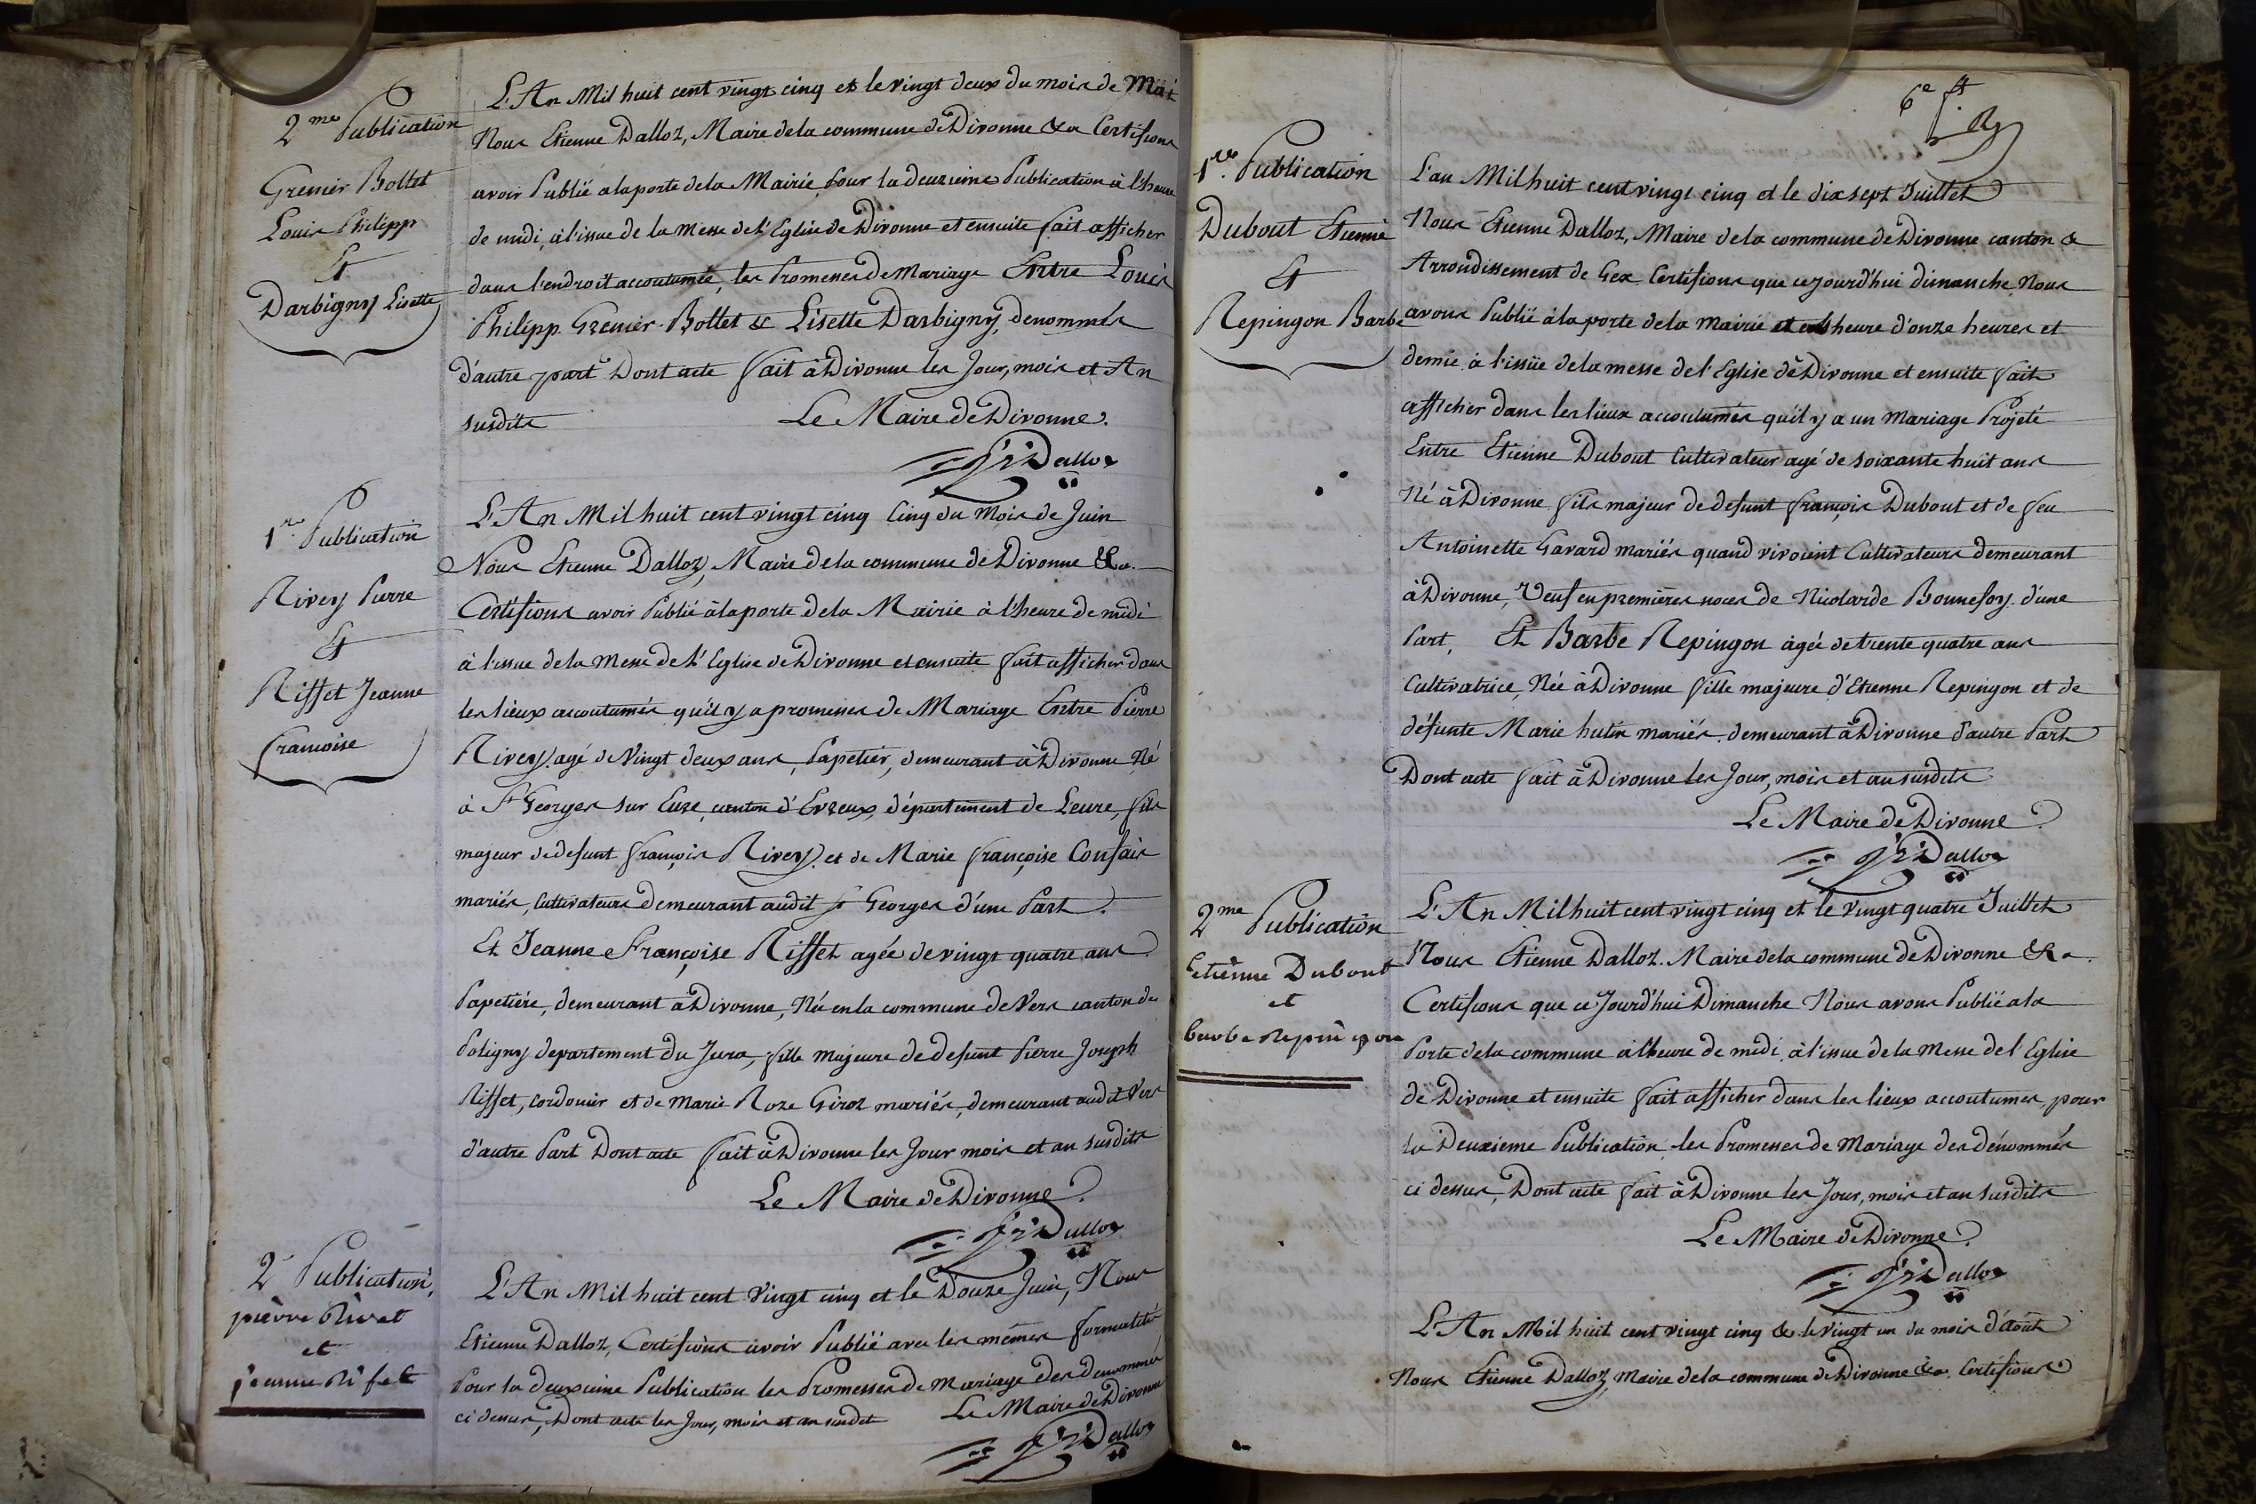 2.me Publication
Grenier Bollet
Louis Philipp
Et
Darbigny Lisette
L'An Mil huit cent vingt cinq et le vingt deux du mois de Mai
Nous Etienne Dalloz, Maire de la commune de Divonne &a Certifions
avoir Publié a la porte de la Mairie pour la deuxieme Publication à l'heure
de midi, à l'issue de la Messe de l'Eglise de Divonne et ensuite fait afficher
dans l'endroit accoutumée, les Promesses de Mariage Entre Louis
Philipp Grenier-Bollet & Lisette Darbigny, denommés
d'autre part Dont acte fait à Divonne les Jour, mois et An
susdits Le Maire de Divonne.
Dalloz
1.re Publication
Rivey Pierre
Et
Riffet Jeanne
francoise
L'An Mil huit cent vingt cinq Cinq du Mois de Juin
Nous Etienne Dalloz, Maire de la commune de Divonne &a.
Certifions avoir Publié à la porte de la Mairie à l'heure de midi
à l'issue de la Messe de l'Eglise de Divonne et ensuite fait afficher dans
les lieux accoutumés qu'il y a promesses de Mariage Entre Pierre
Rivey, agé de Vingt deux ans, Papetier, demeurant à Divonne Né
à St Georges sur Eure, canton d'Evreux, département de Leure, fils
majeur de defunt françois Rivey, et de Marie françoise Confais
mariés, Cultivateurs demeurant audit St Georges d'une Part.
Et Jeanne Françoise Riffet agée de vingt quatre ans
Papetière, demeurant à Divonne, Née en la commune de Vers canton de
Poligny departement du Jura, fille majeure de defunt Pierre Joseph
Riffet, cordonier et de Marie Roze Giroz mariés, demeurant audit Vers
d'autre Part Dont acte fait à Divonne les Jour mois et an susdits
Le Maire de Divonne.
Dalloz
2.e Publication,
pièrre Rivet
et
jeanne Rifet
L'An Mil huit cent Vingt cinq et le Douze Juin, Nous
Etienne Dalloz, Certifions avoir Publié avec les mêmes formalités
Pour la deuxieme Publication les Promesses de Mariage des denommés
ci dessus, Dont acte les Jour, mois et an susdit Le Maire de Divonne
Dalloz
6e ft
1.re Publication
Dubout Etienne
Et
Repingon Barbe
L'an Mil huit cent vingt cinq et le dix sept Juillet
Nous Etienne Dalloz, Maire de la commune de Divonne canton &
Arrondissement de Gex Certifions que cejourd'hui dimanche Nous
avons Publié à la porte de la Mairie et à l'heure d'onze heures et
demie à l'issüe de la messe de l'Eglise de Divonne et ensuite fait
afficher dans les lieux accoutumés qu'il y a un Mariage Projeté
Entre Etienne Dubout Cultivateur agé de soixante huit ans
Né à Divonne fils majeur de defunt françois Dubout et de feu
Antoinette Gavard mariés quand vivoient Cultivateurs demeurant
à Divonne, Veuf en premières noces de Nicolarde Bonnefoy d'une
Part, Et Barbe Repingon âgée de trente quatre ans
Cultivatrice, Née à Divonne fille majeure d'Etienne Repingon et de
défunte Marie hutin mariés, demeurant à Divonne d'autre Part
Dont acte fait à Divonne les Jour, mois et an susdits
Le Maire de Divonne
Dalloz
2.me Publication
Etiènne Dubout
et
barbe Repingon
L'An Mil huit cent vingt cinq et le Vingt quatre Juillet
Nous Etienne Dalloz. Maire de la commune de Divonne &a.
Certifions que ce Jourd'hui Dimanche Nous avons Publié a la
Porte de la commune à l'heure de midi, à l'issue de la Messe de l'Eglise
de Divonne et ensuite fait afficher dans les lieux accoutumes, pour
la Deuxieme Publication, les Promesses de Mariage des dénommés
ci dessus, Dont acte fait à Divonne les Jour, mois et an susdits
Le Maire de Divonne.
Dalloz
L'An Mil huit cent vingt cinq & le Vingt un du mois d'août
Nous Etienne Dalloz, Maire de la commune de Divonne &a. Certifions